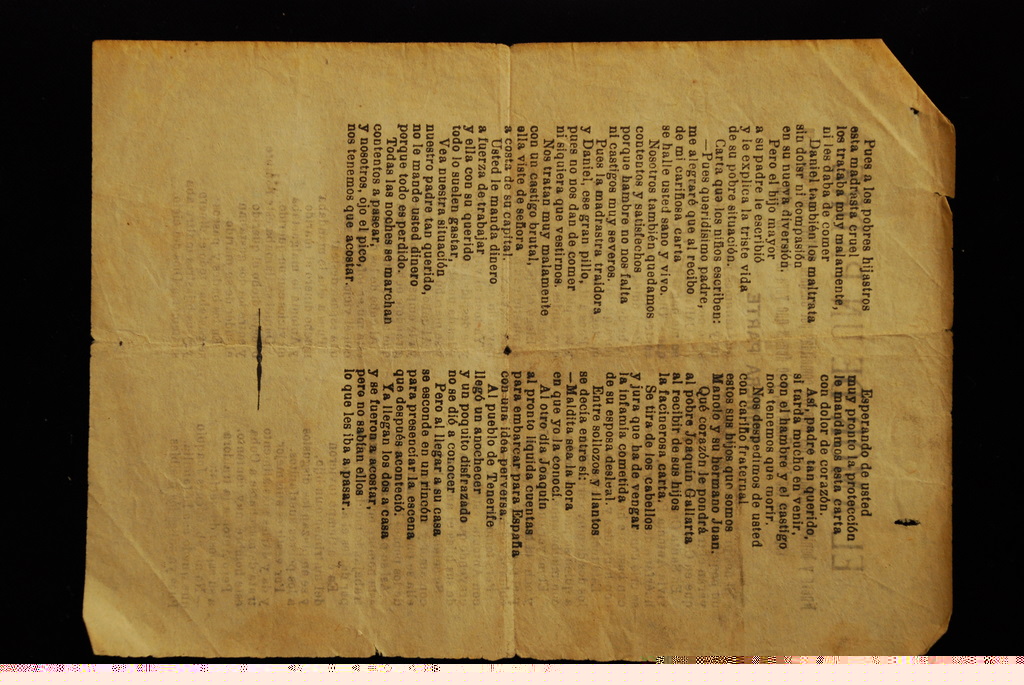 Pues a los pobres hijastros
esta madrasta cruel
los trataba muy malamente,
ni les daba de comer
Daniel también los maltrata
sin dolor ni compasión
en su nueva diversión.
Pero el hijo mayor
a su padre le escribió
y le explica la triste vida
de su pobre situación.
Carta que los niños escriben:
—Pues queridísimo padre,
me alegraré que al recibo
de mi cariñosa carta
se halle usted sano y vivo.
Nosotros también quedamos
contentos y satisfechos
porque hambre no nos falta
ni castigos muy severos.
Pues la madrastra traidora
y Daniel, ese gran pillo,
pues no nos dan de comer
ni siquiera que vestirnos.
Nos tratan muy malamente
con un castigo brutal,
ella viste de señora
a costa de su capital.
Usted le manda dinero
a fuerza de trabajar
y ella con su querido
todo lo suelen gastar,
Vea nuestra situación
nuestro padre tan querido,
no le mande usted dinero
porque todo es perdido.
Todas las noches se marchan
contentos a pasear,
y nosotros, ojo el pico,
nos tenemos que acostar.
Esperando de usted
muy pronto la protección
le mandamos esta carta
con dolor de corazón.
Así, padre tan querido,
si tarda mucho en venir,
con el hambre y el castigo
nos tenemos que morir.
Nos despedimos de usted
con cariño fraternal
estos sus hijos que somos
Manolo y su hermano Juan.
Qué corazón le pondrá
al pobre Joaquín Gallarta
al recibir de sus hijos
la facinerosa carta.
Se tira de los cabellos
y jura que ha de vengar
la infamia cometida
de su esposa desleal.
Entre sollozos y llantos
se decía entre sí:
—Maldita sea la hora
en que yo la conocí.
Al otro día Joaquín
al pronto liquida cuentas
para embarcar para España
con una idea perversa.
Al pueblo de Tenerife
llegó un anochecer
y un poquito disfrazado
no se dió a conocer
Pero al llegar a su casa
se esconde en un rincón
para presenciar la escena
que después aconteció.
Ya llegan los dos a casa
y se fueron a acostar,
pero no sabían ellos
lo que les iba a pasar.